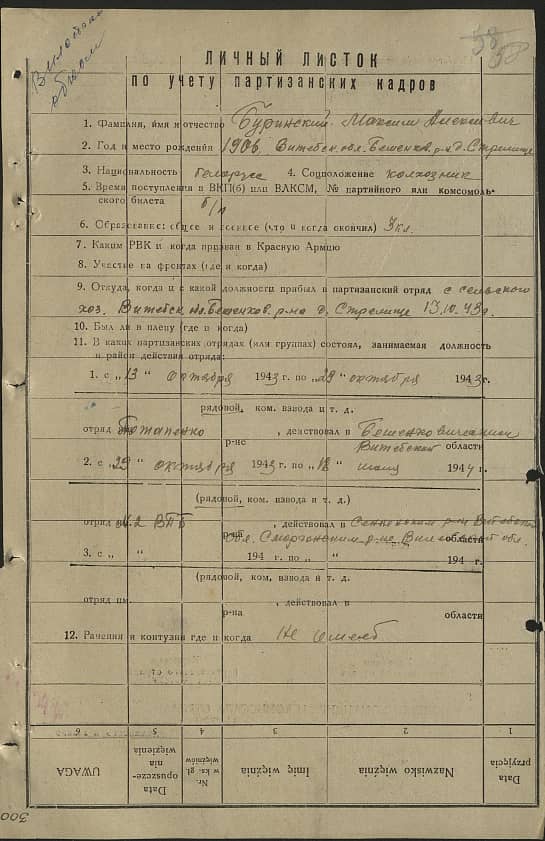 Вилейский
обком
58
ЛИЧНЫЙ ЛИСТОК
по учету партизанских кадров
1. Фамилия, имя и отчество Буринский Максим Алексеевич
2. Год и место рождения 1906. Витебск. обл. Бешенков. р-н д. Стрелище
3. Национальность беларус 4. Соцположение колхозник
5. Время поступления в ВКП(б) или ВЛКСМ, № партийного или комсомоль-
ского билета б/п
6. Образование: общее и военное (что и когда окончил) 3 кл.
7. Каким РВК и когда призван в Красную Армию
8. Участие на фронтах (где и когда)
9. Откуда, когда и с какой должности прибыл в партизанский отряд с сельского
хоз. Витебск. Бешенков. р-на д. Стрелище 13.10.43 г.
10. Был ли в плену (где и когда)
11. В каких партизанских отрядах (или группах) состоял, занимаемая должность
и район действия отряда:
1. с „13" октября 1943 г. по „29" октября 1943 г.
рядовой, ком. взвода и т. д.
отряд Потапенко, действовал в Бешенковичском
р-не Витебской области
2. с „29" октября 1943 г. по „18" 1944 г.
(рядовой, ком. взвода и т. д.)
отряд №2 ВПБ, действовал в Сенненском р-не Витебской
р-на обл. Сморгонским р-не Вилейской обл. области
3. с „ " 194 г. по „ " 194 г.
(рядовой, ком. взвода и т. д.
отряд им. , действовал в
р-на области
12. Ранения и контузии где и когда Не имеет
1 2 3 4 5 6
Data przyjęcia
Nazwisko więźnia
Imię więźnia
Nr. w ks. gł. więźniów
Data opuszcze- nia więzienia
UWAGA
300